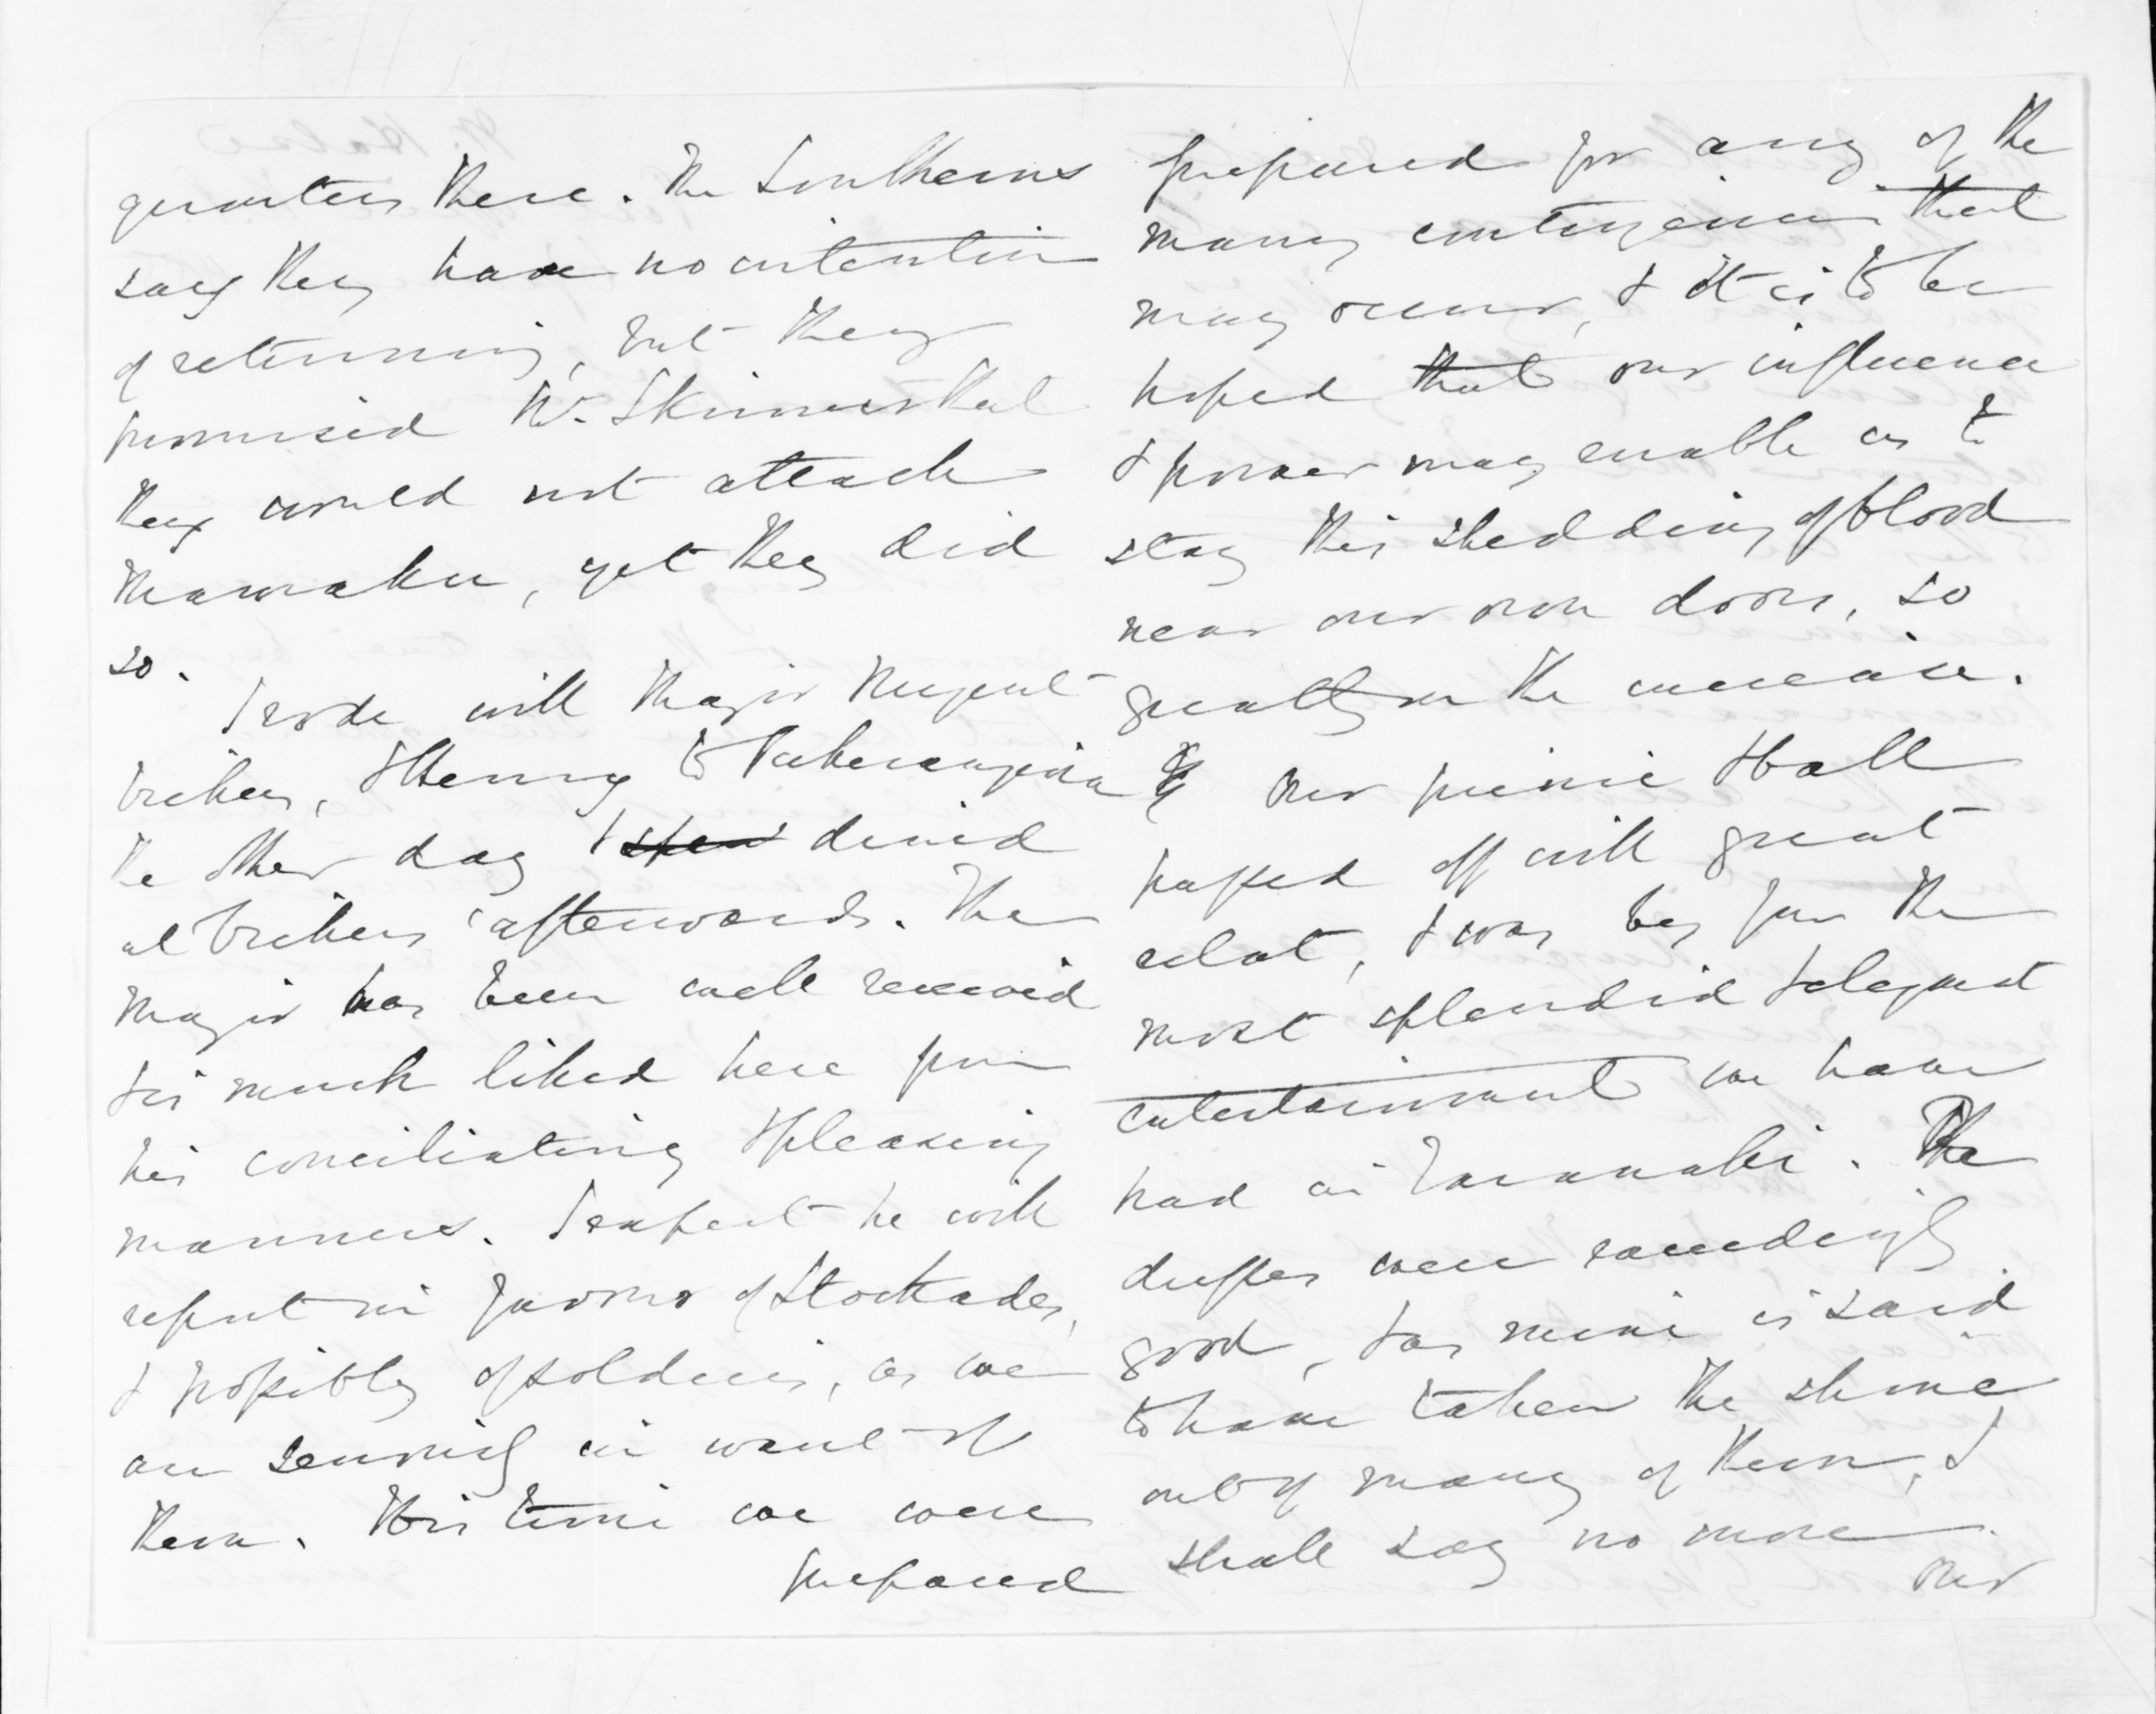 quarters there. The Southerns
say they have no intention
of returning, but they
promised Mr. Skinner that
they would not attack
Mamaku, yet they did
so.
I rode with Major Nugent
& Henry to
the other day & spen dined
at afterwards. The
Major has been well received
& is much liked here from
his conciliating & pleasing
manners. I expect he will
report in favour of Stockades,
& possibly of soldiers, as we
are seriously in want of
them. This time we were
prepared
prepared for any of the
many contingencies that
may occur, & it is to be
hoped that our influence
& power may enable us to
stay this shedding of blood
near our own doors, so
greatly on the increase.
Our picnic & ball
passed off with great
eclat, & was by far the
most splendid & elegant
entertainment we have
had in Taranaki. The
dresses were exceedingly
good, & as mine is said
to have taken the shine
out of many of them, I
shall say no more
our